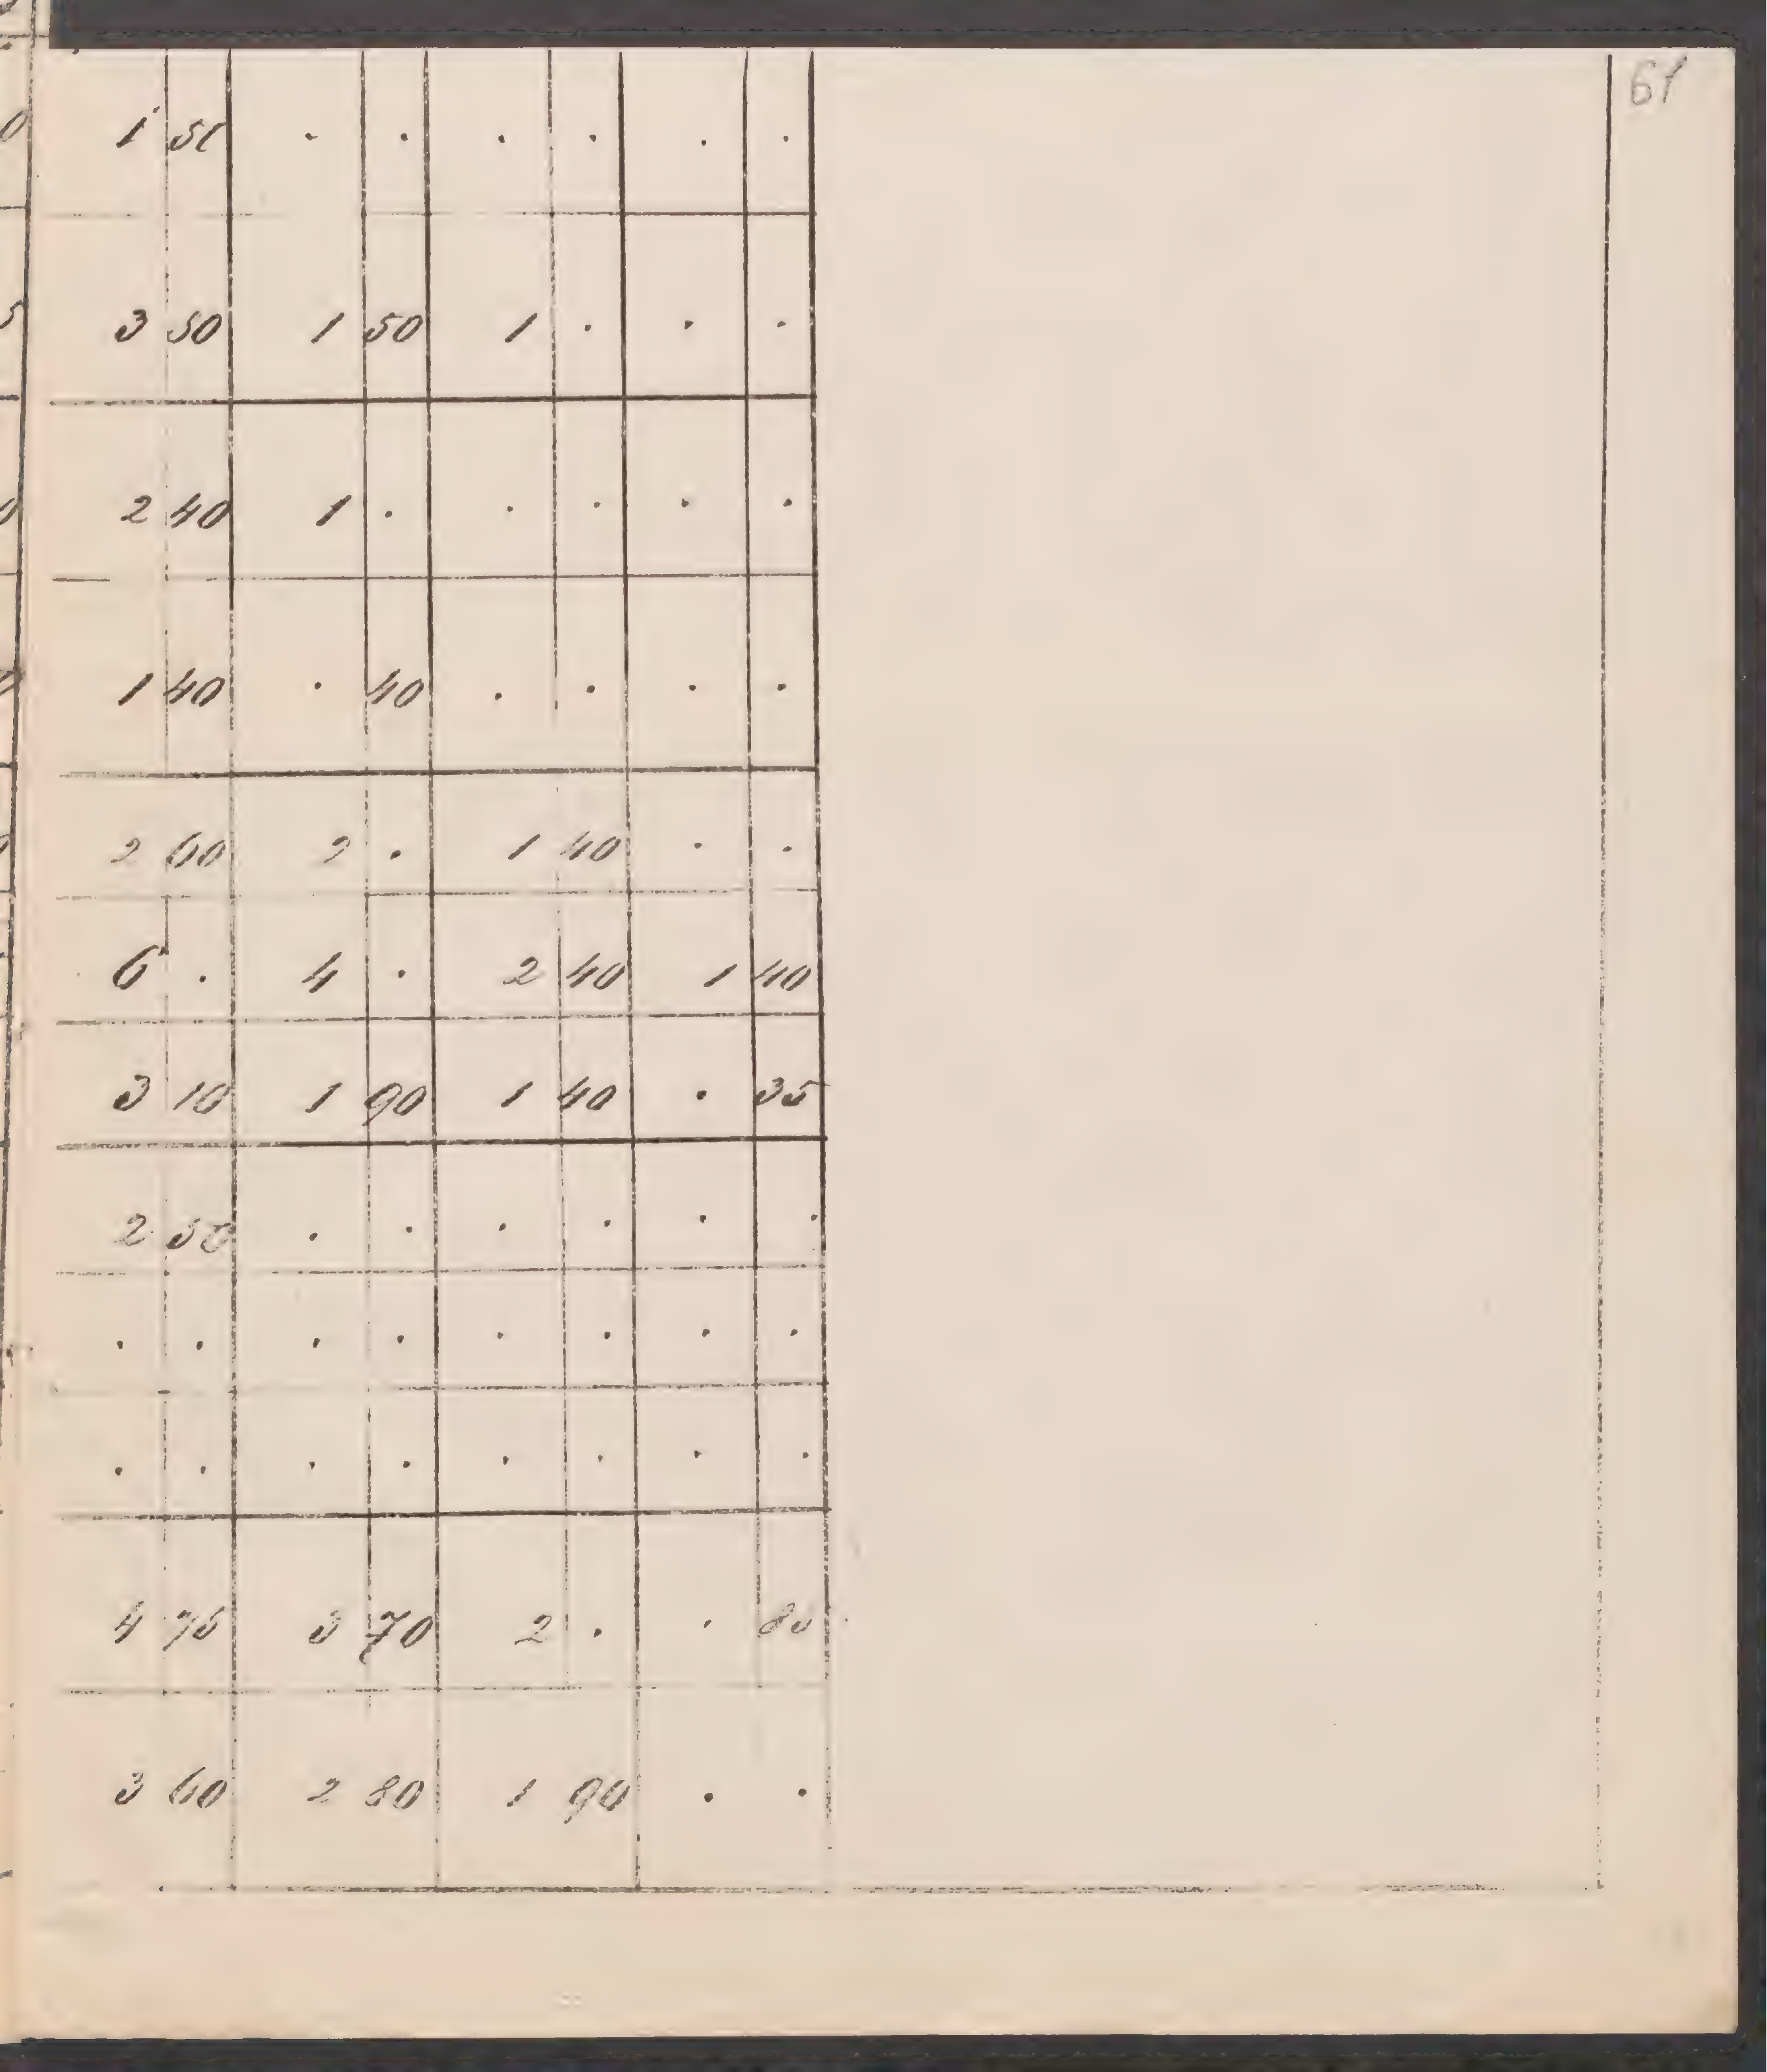 61
1 50 . . . . . .
3 50 1 50 1 . . .
2 40 1 . . . . .
1 40 . 40 . . . .
2 60 2 . 1 40 . .
6 . 4 . 2 40 1 40
3 10 1 90 1 40 . 35
2 50 . . . . . .
. . . . . . . .
. . . . . . . .
4 75 3 70 2 . . 80
3 60 2 80 1 90 . .